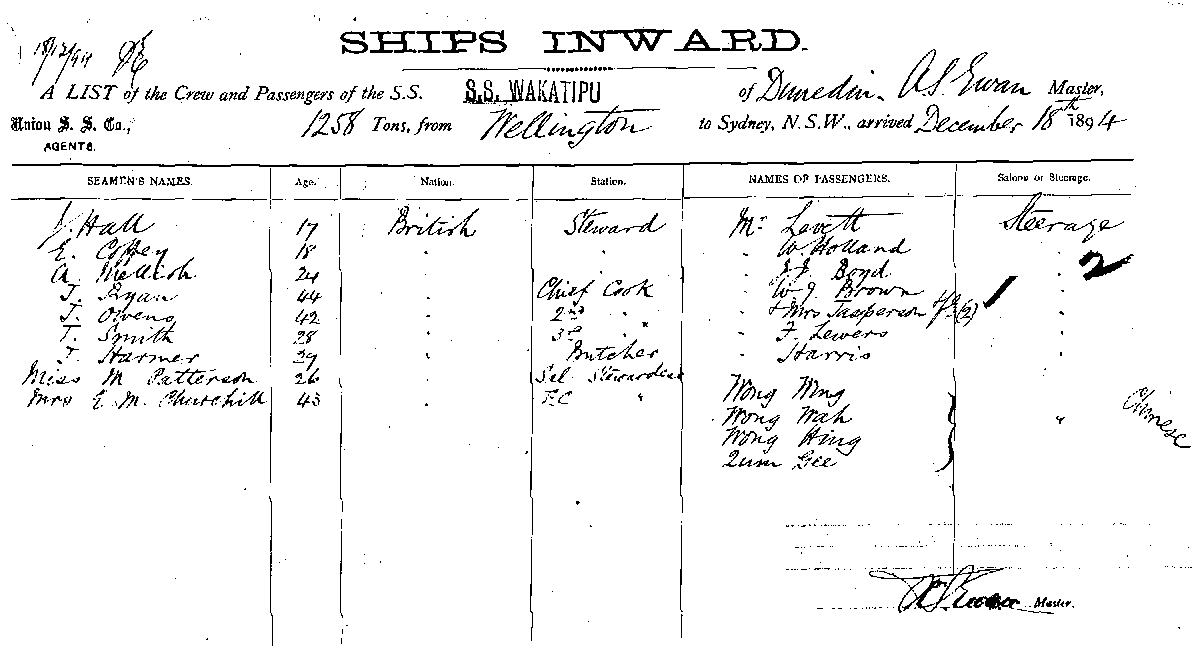 18/12/94
SHIPS INWARD.
A LIST of the Crew and Passengers of the S.S. S.S. WAKATIPU of Dunedin. A S Ewan Master,
Union S. S. Co., 1258 Tons, from Wellington to Sydney, N.S.W., arrived December 18th 1894
AGENTS.
SEAMEN'S NAMES. Age. Nation. Station. NAMES OF PASSENGERS. Saloon or Steerage.
J. Hall 17 British Steward Mr Levett Steerage
E. Coffey 18 " " " W. Holland "
A. Mellish 24 " " J. Boyd " 2
T. Ryan 44 " Chief Cook " W J. Brown "
T. Owens 42 " 2nd " " + Mrs Jasperson (2) "
T. Smith 28 " 3rd " " F. Lewers "
T. Harmer 29 " Butcher " Harris "
Miss M. Patterson 26 " Sal Stewardess
Mrs E. M. Churchill 43 " F.C " Wong Wing
Wong Wah " Chinese
Wong Hing
Qum Gee
Master.